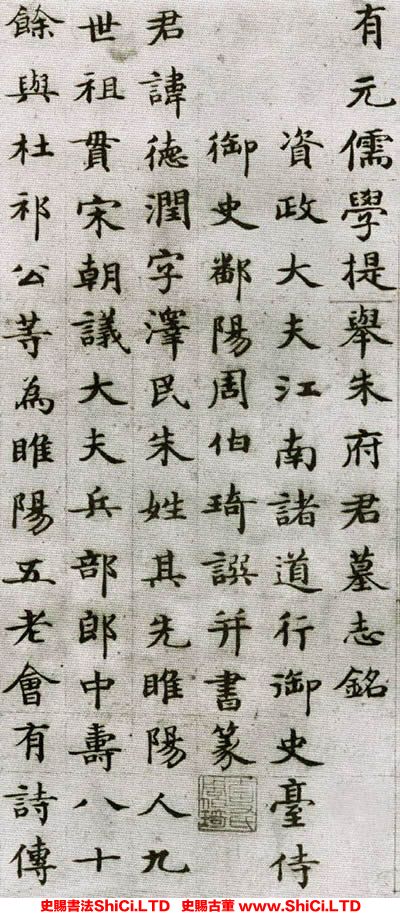 有元儒學提舉朱府君墓志銘
資政大夫江南諸道行御史臺侍
御史鄱陽周伯琦譔并書篆
君諱德潤字澤民朱姓其先睢陽人九
世祖貫宋朝議大夫兵部郎中壽八十
餘與杜祁公等為睢陽五老會有詩傳
史賜書法ShiCi.LTD 史賜古董 www.ShiCi.LTD